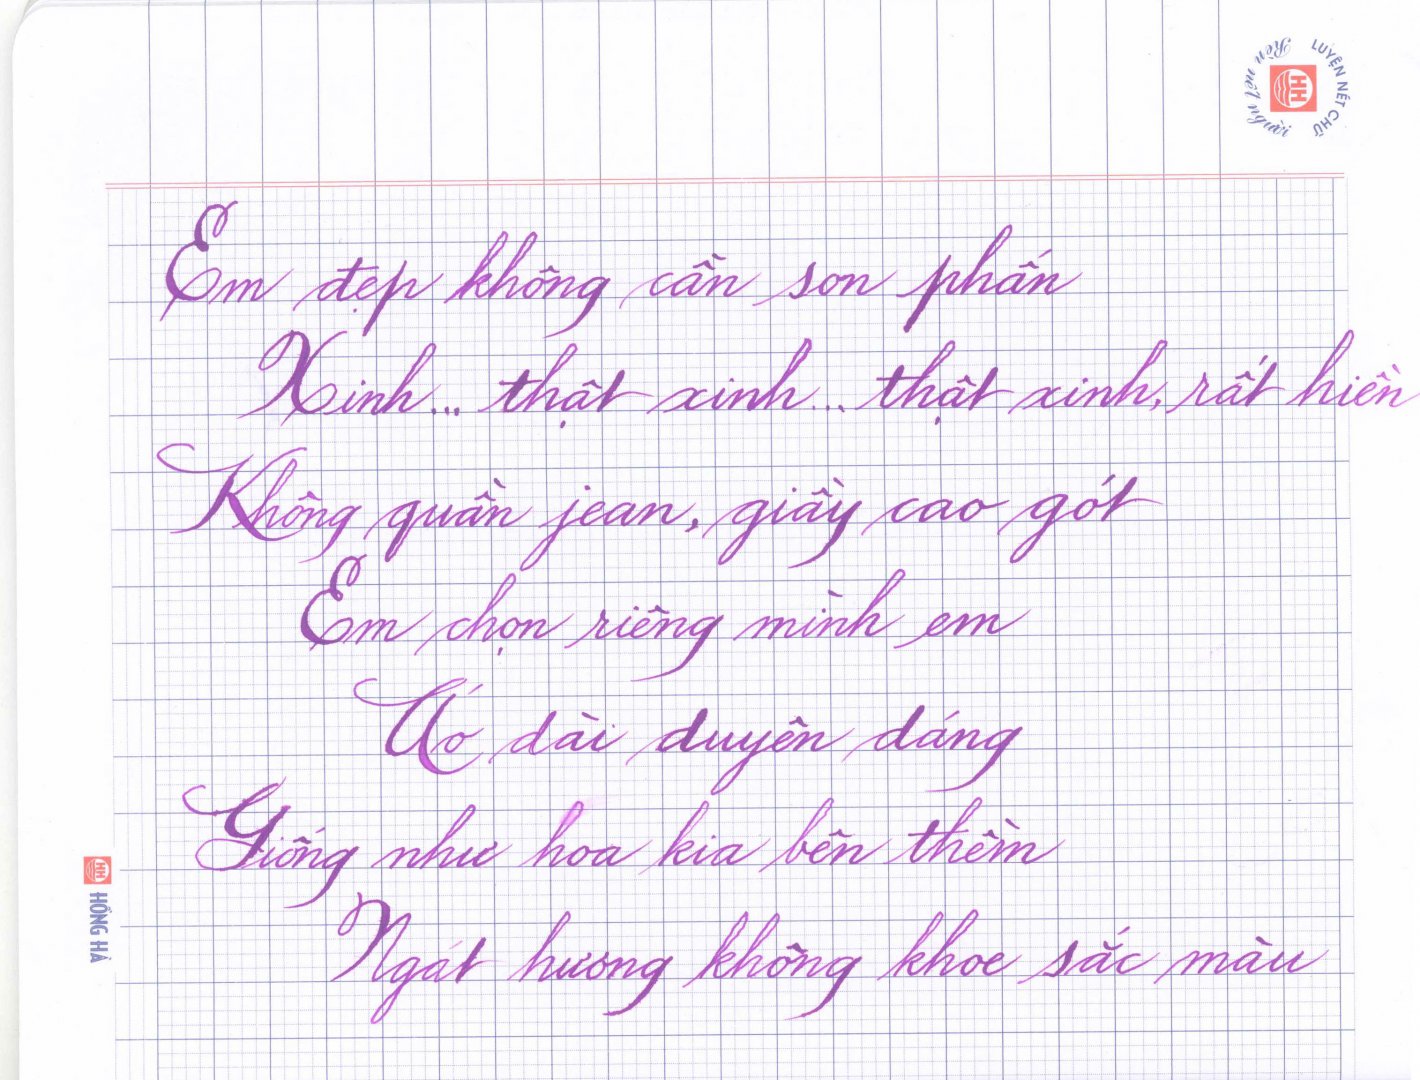 LUYỆN NÉT CHỮ
Rèn nết người
Em đẹp không cần son phấn
Xinh... thật xinh... thật xinh, rất hiền
Không quần jean, giầy cao gót
Em chọn riêng mình em
Áo dài duyên dáng
Giống như hoa kia bên thềm
Ngát hương không khoe sắc màu
HH HỒNG HÀ